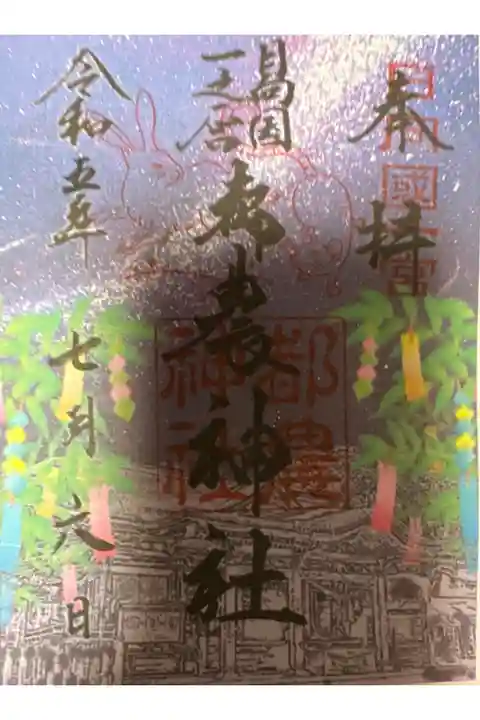 奉拝
日向国
一之宮
都農神社
令和五年
七月六日
日向國一宮
都農
神社